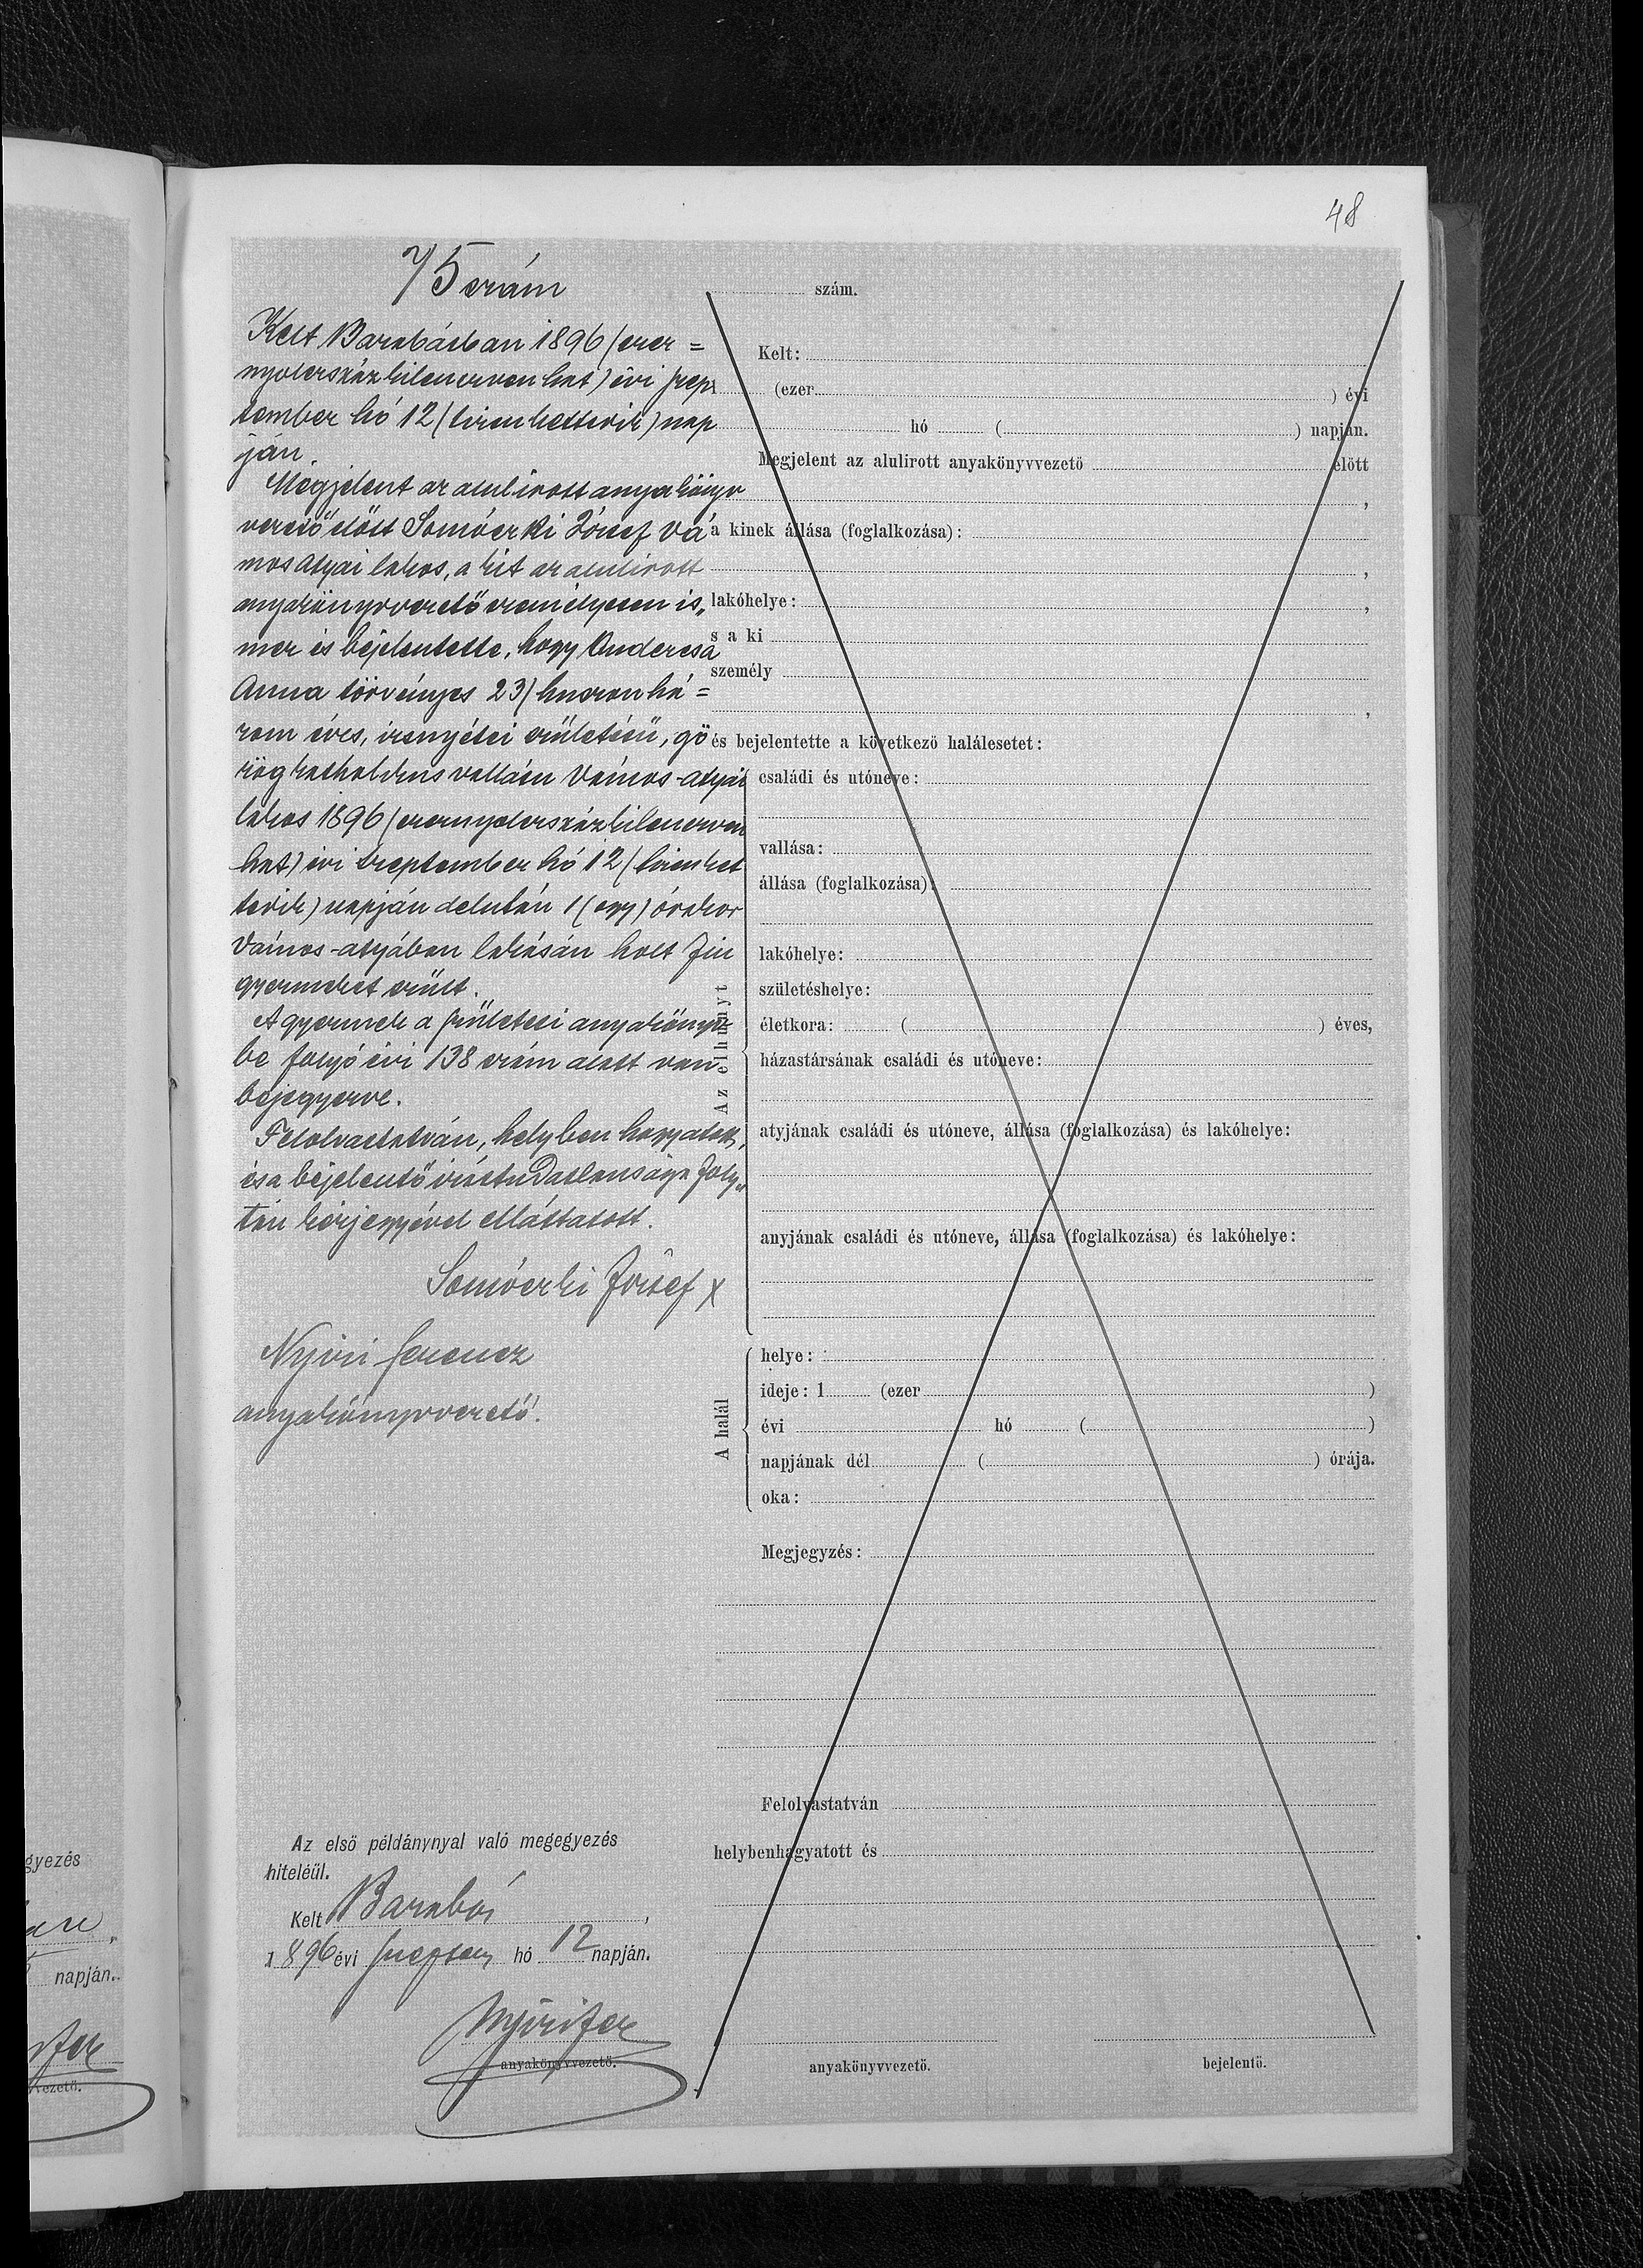 48
75 szám
Kelt Barabásban 1896 (ezer =
nyolczszázkilenczvenhat) évi szep
tember hó 12 (tizenkettedik) nap
ján.
Megjelent az alulirott anyakönyv
vezető előtt Somóczki József Vá
mos Atyai lakos, a kit az alulirott
anyakönyvvezető személyesen is„
mer és bejelentette, hogy Andercsa
Anna törvényes 23 (huszonhá =
rom éves, születésű, gö
rög katholikus vallásu Vámos-atyai
lakos 1896 (ezernyolczszázkilenczven
hat) évi szeptember hó 12 (tizenket
tedik) napján délután 1 (egy) órakor
Vámos-atyában lakásán holt fiu
gyermeket szült.
A gyermek a születési anyakönyv
be folyó évi 138 szám alatt van
bejegyezve.
Felolvastatván, helyben hagyatott,
és a bejelentő irástudatlansága foly„
tán kézjegyével elláttatott.
Somóczki József x
Nyiri Ferencz
anyakönyvvezető.
Az első példánynyal való megegyezés
hiteléül.
Kelt Barabás,
1896 évi Szeptem hó 12 napján.
Nyiri Fer
anyakönyvvezető.
szám.
Kelt:
(ezer ) évi
hó ( ) napján.
Megjelent az alulirott anyakönyvvezető előtt
,
a kinek állása (foglalkozása):
,
lakóhelye: ,
s a ki
személy
,
és bejelentette a következő halálesetet:
Az elhunyt
családi és utóneve:
vallása:
állása (foglalkozása):
lakóhelye:
születéshelye:
életkora: ( ) éves,
házastársának családi és utóneve:
atyjának családi és utóneve, állása (foglalkozása) és lakóhelye:
anyjának családi és utóneve, állása (foglalkozása) és lakóhelye:
A halál
helye:
ideje: 1 (ezer )
évi hó ( )
napjának dél ( ) órája.
oka:
Megjegyzés:
Felolvastatván
helybenhagyatott és
anyakönyvvezető. bejelentő.
gyezés
napján.
vezető.